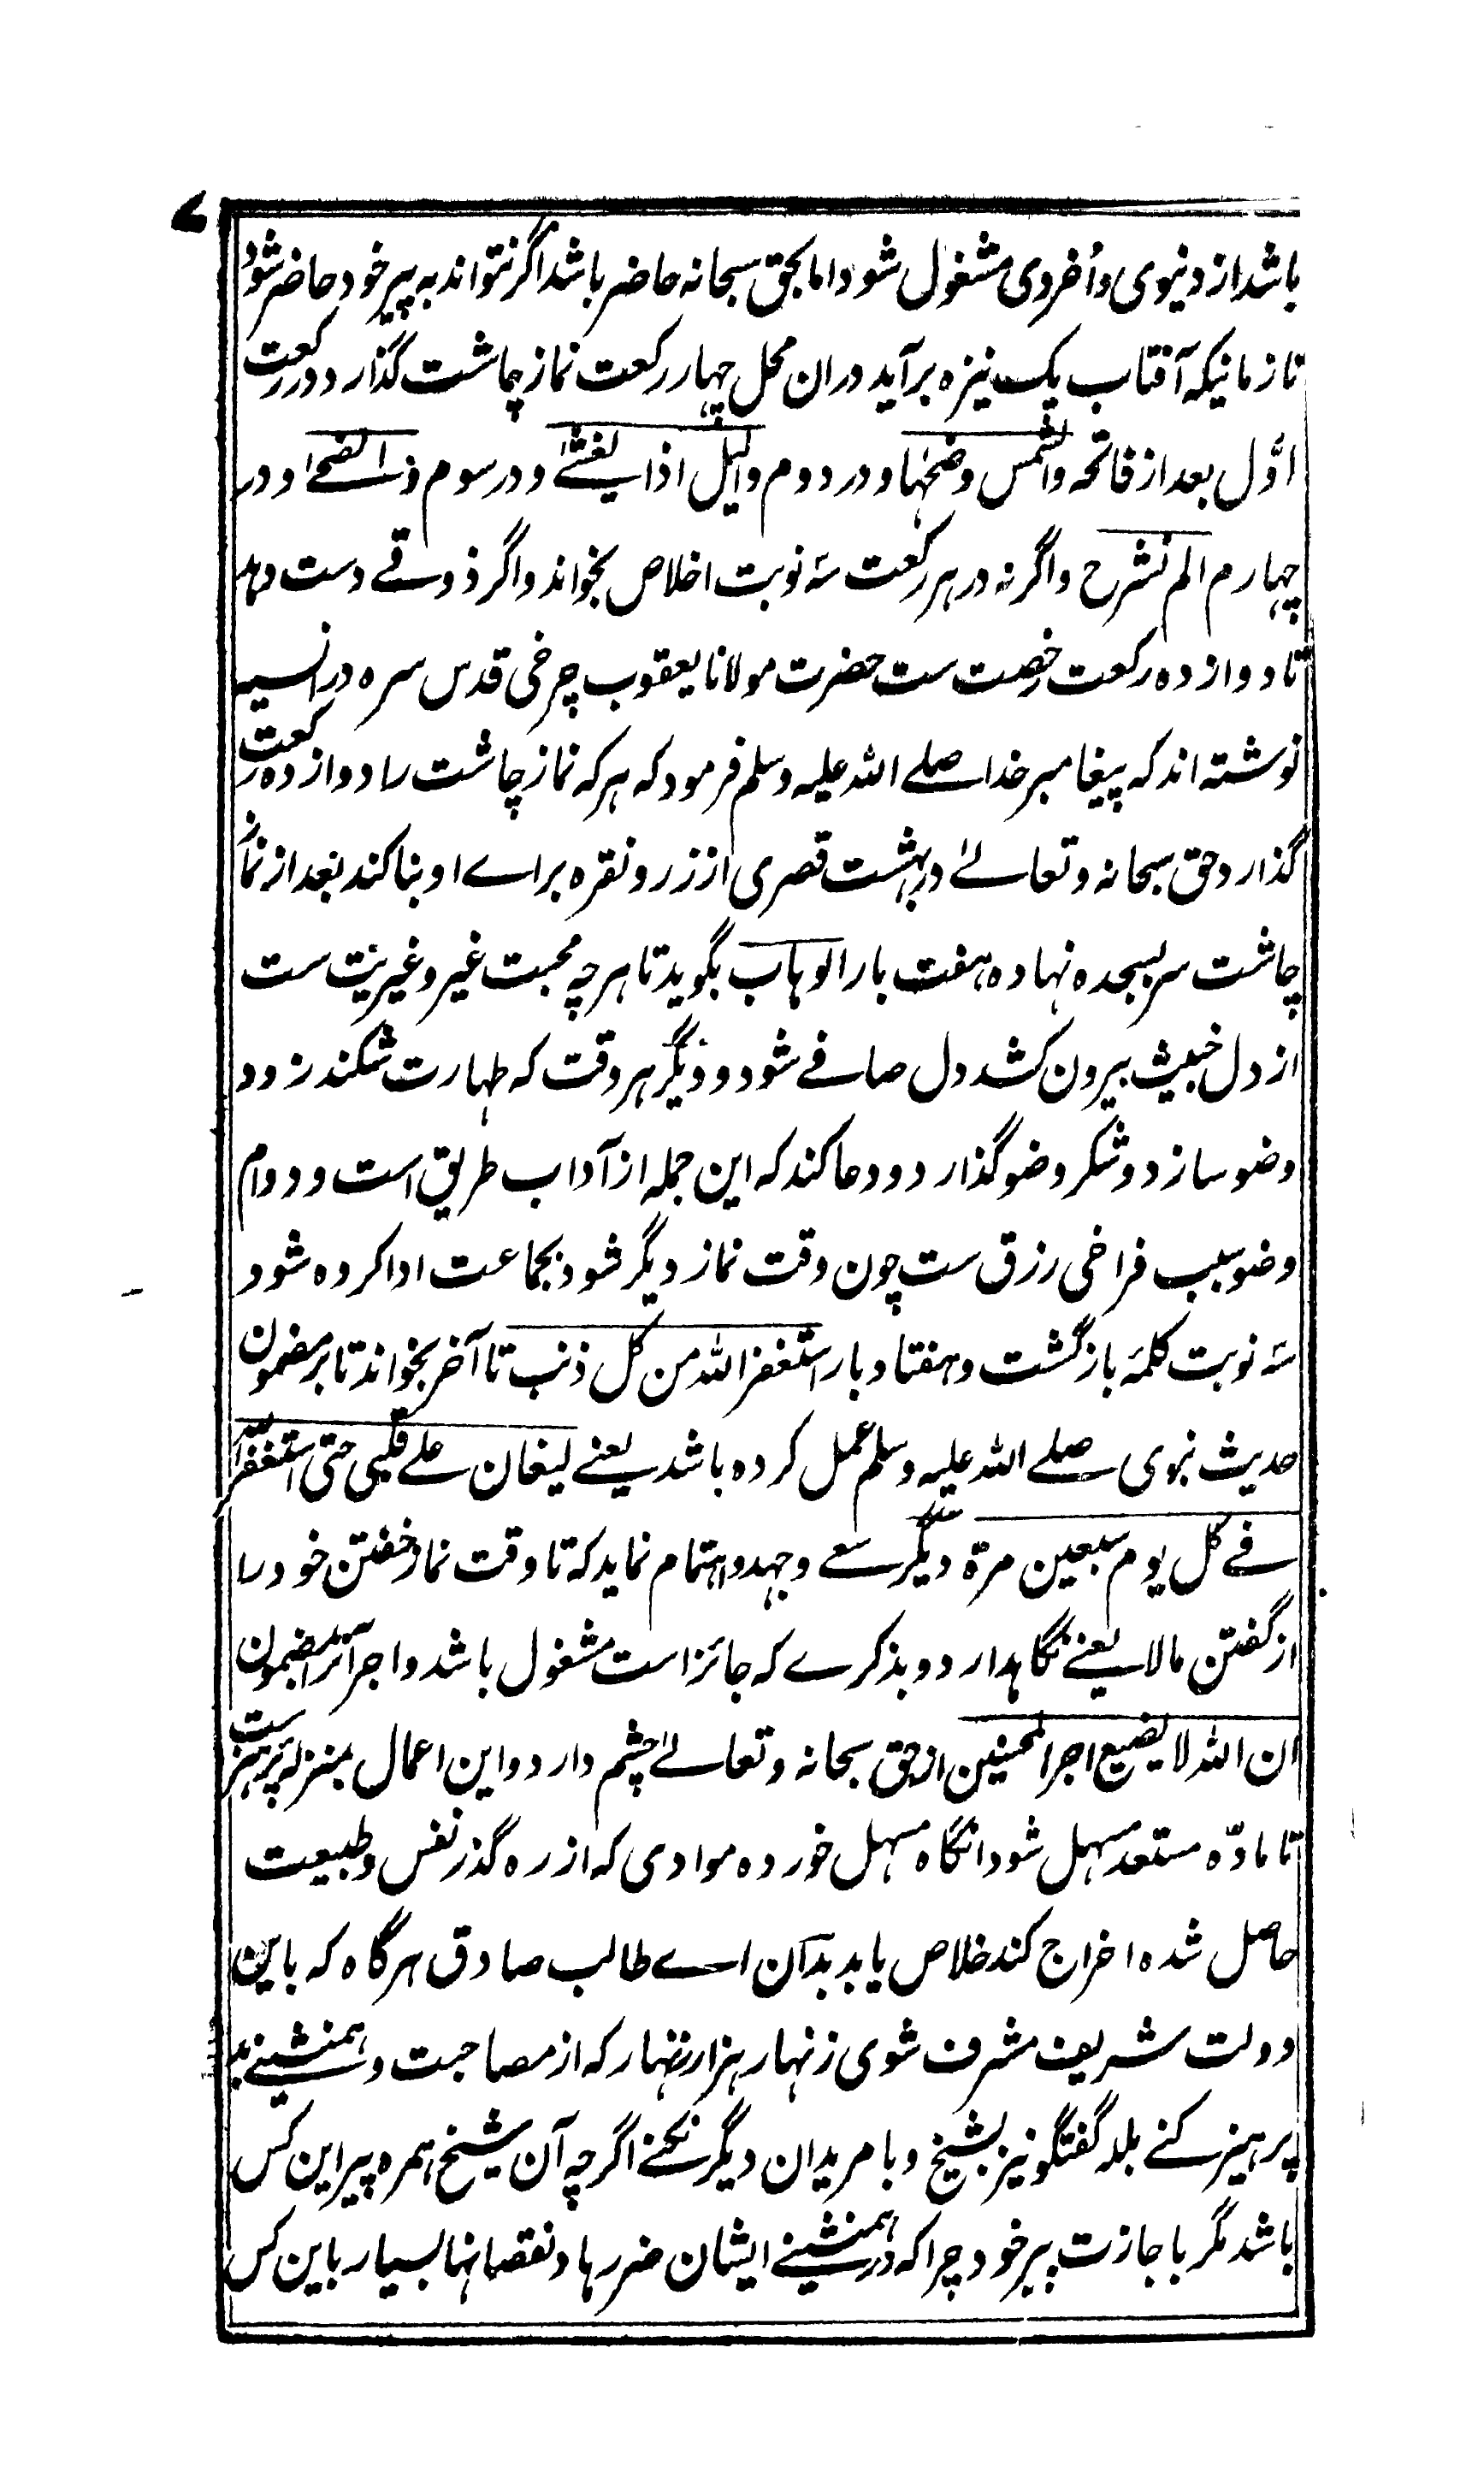 ۷
باشد از دنیوی و اُخروی مشغول شود اما بحق سبحانه حاضر باشد اگر نتواند به پیر خود حاضر شود
تا زمانیکه آفتاب یک نیزه برآید دران محل چهار رکعت نماز چاشت گذارد در رکعت
اوّل بعد از فاتحه والشمس وضحٰها و در دوم والیل اذا یغشےٰ و در سوم والضحےٰ و در
چهارم الم نشرح و اگر نه در هر رکعت سه نوبت اخلاص بخواند و اگر ذوقے دست دهد
تا دوازده رکعت رخصت ست حضرت مولانا یعقوب چرخی قدس سره در انسیه
نوشته اند که پیغامبر خدا صلے الله علیه وسلم فرمود که هر که نماز چاشت را دوازده رکعت
گذارد حق سبحانه و تعالےٰ در بهشت قصری از زر و نقره براے او بنا کند بعد از نماز
چاشت سر بسجده نهاده هفت بار الوهاب بگوید تا هر چه محبت غیر و غیریت ست
از دل خبیث بیرون کشد دل صافے شود و دیگر هر وقت که طهارت شکند زود
وضو سازد و شکر وضو گذارد و دعا کند که این جمله از آداب طریق است و دوام
وضو سبب فراخی رزق ست چون وقت نماز دیگر شود بجماعت ادا کرده شود
سه نوبت کلمهٔ بازگشت و هفتاد بار استغفر الله من کل ذنب تا آخر بخواند تا بر مضمون
حدیث نبوی صلے الله علیه وسلم عمل کرده باشد یعنے لیغان علے قلبی حتی استغفر الله
فے کل یوم سبعین مرة دیگر سعے و جهد و اهتمام نماید که تا وقت نماز خفتن خود را
از گفتن مالا یعنے نگاهدارد و بذکرے که جائز است مشغول باشد و اجر آنرا بمضمون
ان الله لا یضیع اجر المحسنین از حق سبحانه و تعالےٰ چشم دارد و این اعمال بمنزلهٔ پرهیز ست
تا مادّه مستعد مسهل شود انگاه مسهل خورده موادی که از ره گذر نفس و طبیعت
حاصل شده اخراج کند خلاص یابد بدان اے طالب صادق هرگاه که باین
دولت شریف مشرف شوی زنهار هزار زنهار که از مصاحبت و همنشینے بد
پرهیز کنے بلکه گفتگو نیز بشیخ و با مریدان دیگر نکنے اگرچه آن شیخ همره پیر این کس
باشد مگر باجازت پیر خود چرا که در همنشینے ایشان ضررها و نقصانها بسیار باین کس